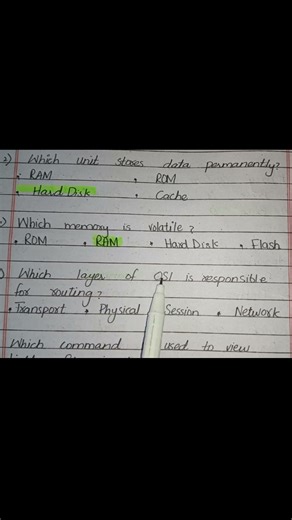 2) Which unit stores data permanently?
• RAM • ROM
• Hard Disk • Cache
) Which memory is volatile?
• ROM • RAM • Hard Disk • Flash
) Which layer of OSI is responsible
for routing?
• Transport • Physical Session • Network
Which command used to view